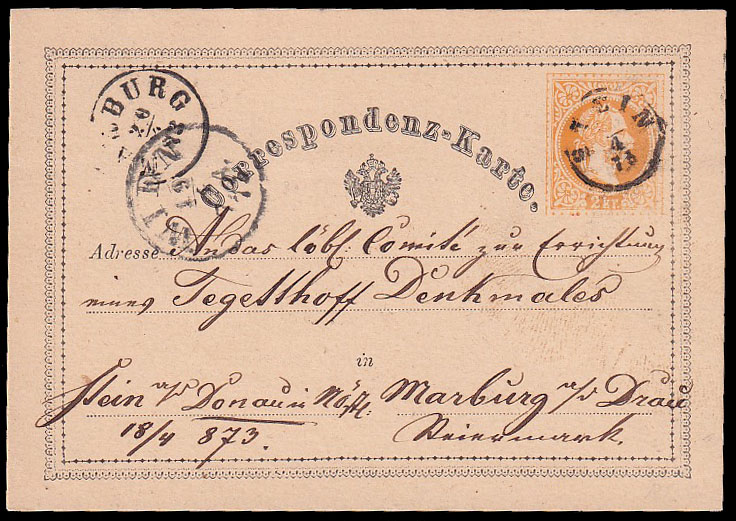 BURG
WIEN
STEIN
4
73
Correspondenz-Karte.
Adresse An das löbl. Comité zur Errichtung
eines Tegetthoff Denkmales
in
Stein a/d Donau in Marburg a/d Drau
18/4 873. Steiermark.